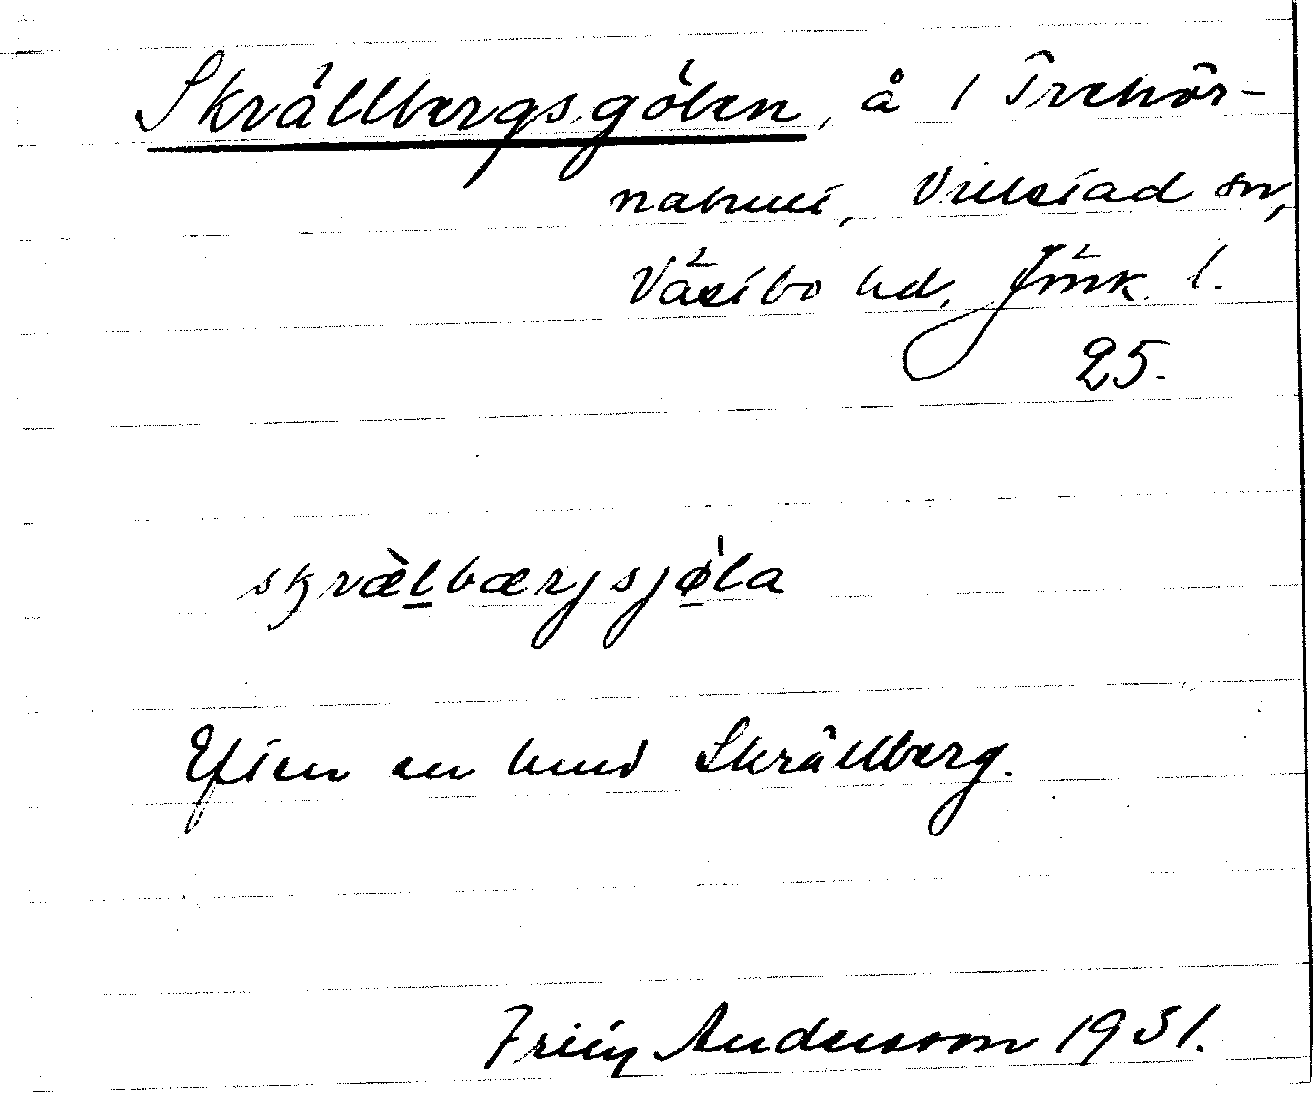 Skrällbergsgölen, å 1 Trehör-
nahult, Villstad sn,
Västbo hd, Jönk. l.
25.
skræ̀l̲bærjsjø̲̍la
Efter en hund Skrällberg.
Fritz Andersson 1931.